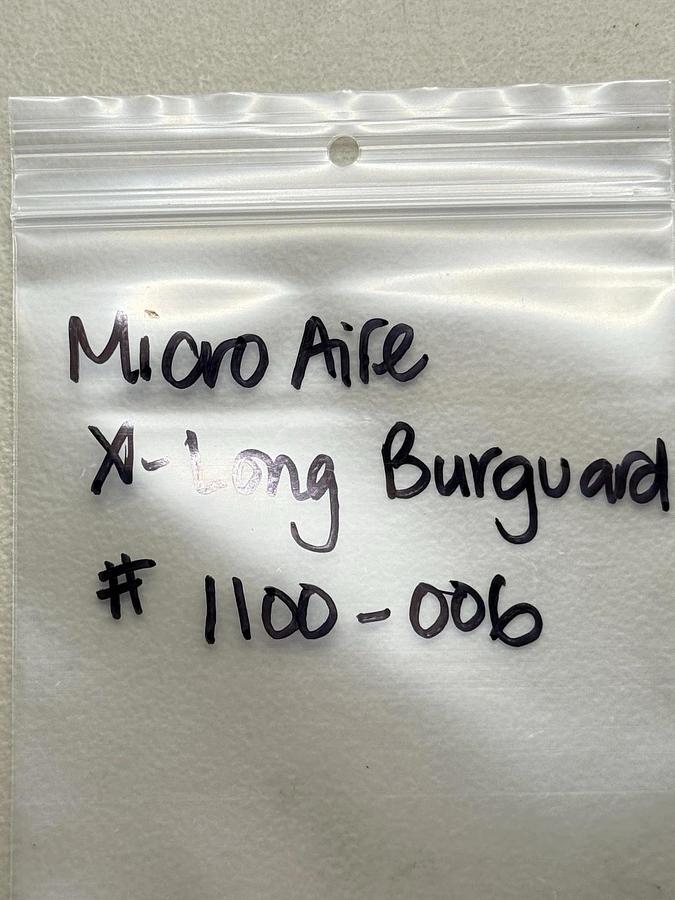 Micro Aire
X-Long Burguard
# 1100-006